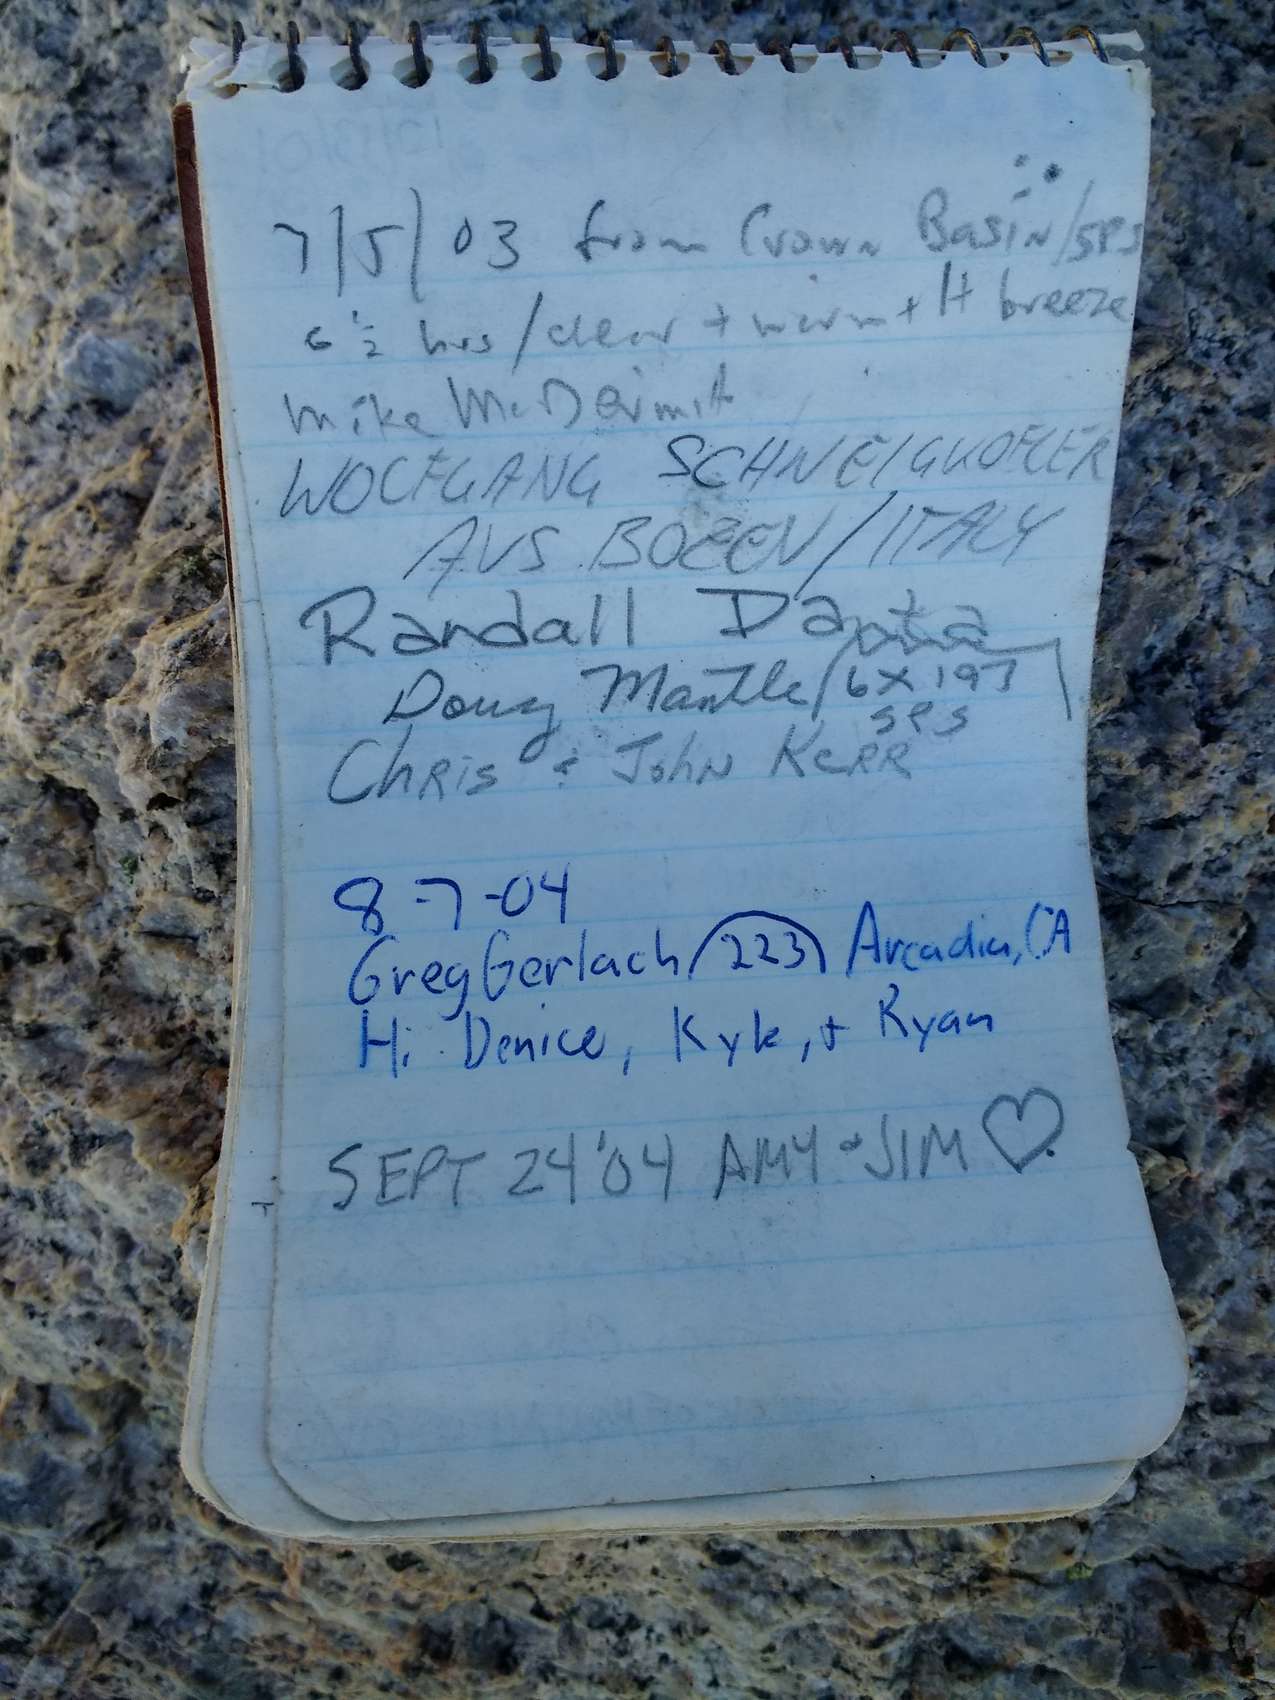 7/5/03 from Crown Basin/SPS
6 1/2 hrs/clear + warm + lt breeze
Mike McDermitt
WOLFGANG
AVS BOZEN/ITALY
Randall Danta
Doug Mantle/6X 197
SPS
Chris & John Kerr
8-7-04
Greg Gerlach 223 Arcadia, CA
Hi Denice, Kyle, + Ryan
SEPT 24 '04 AMY & JIM ♡